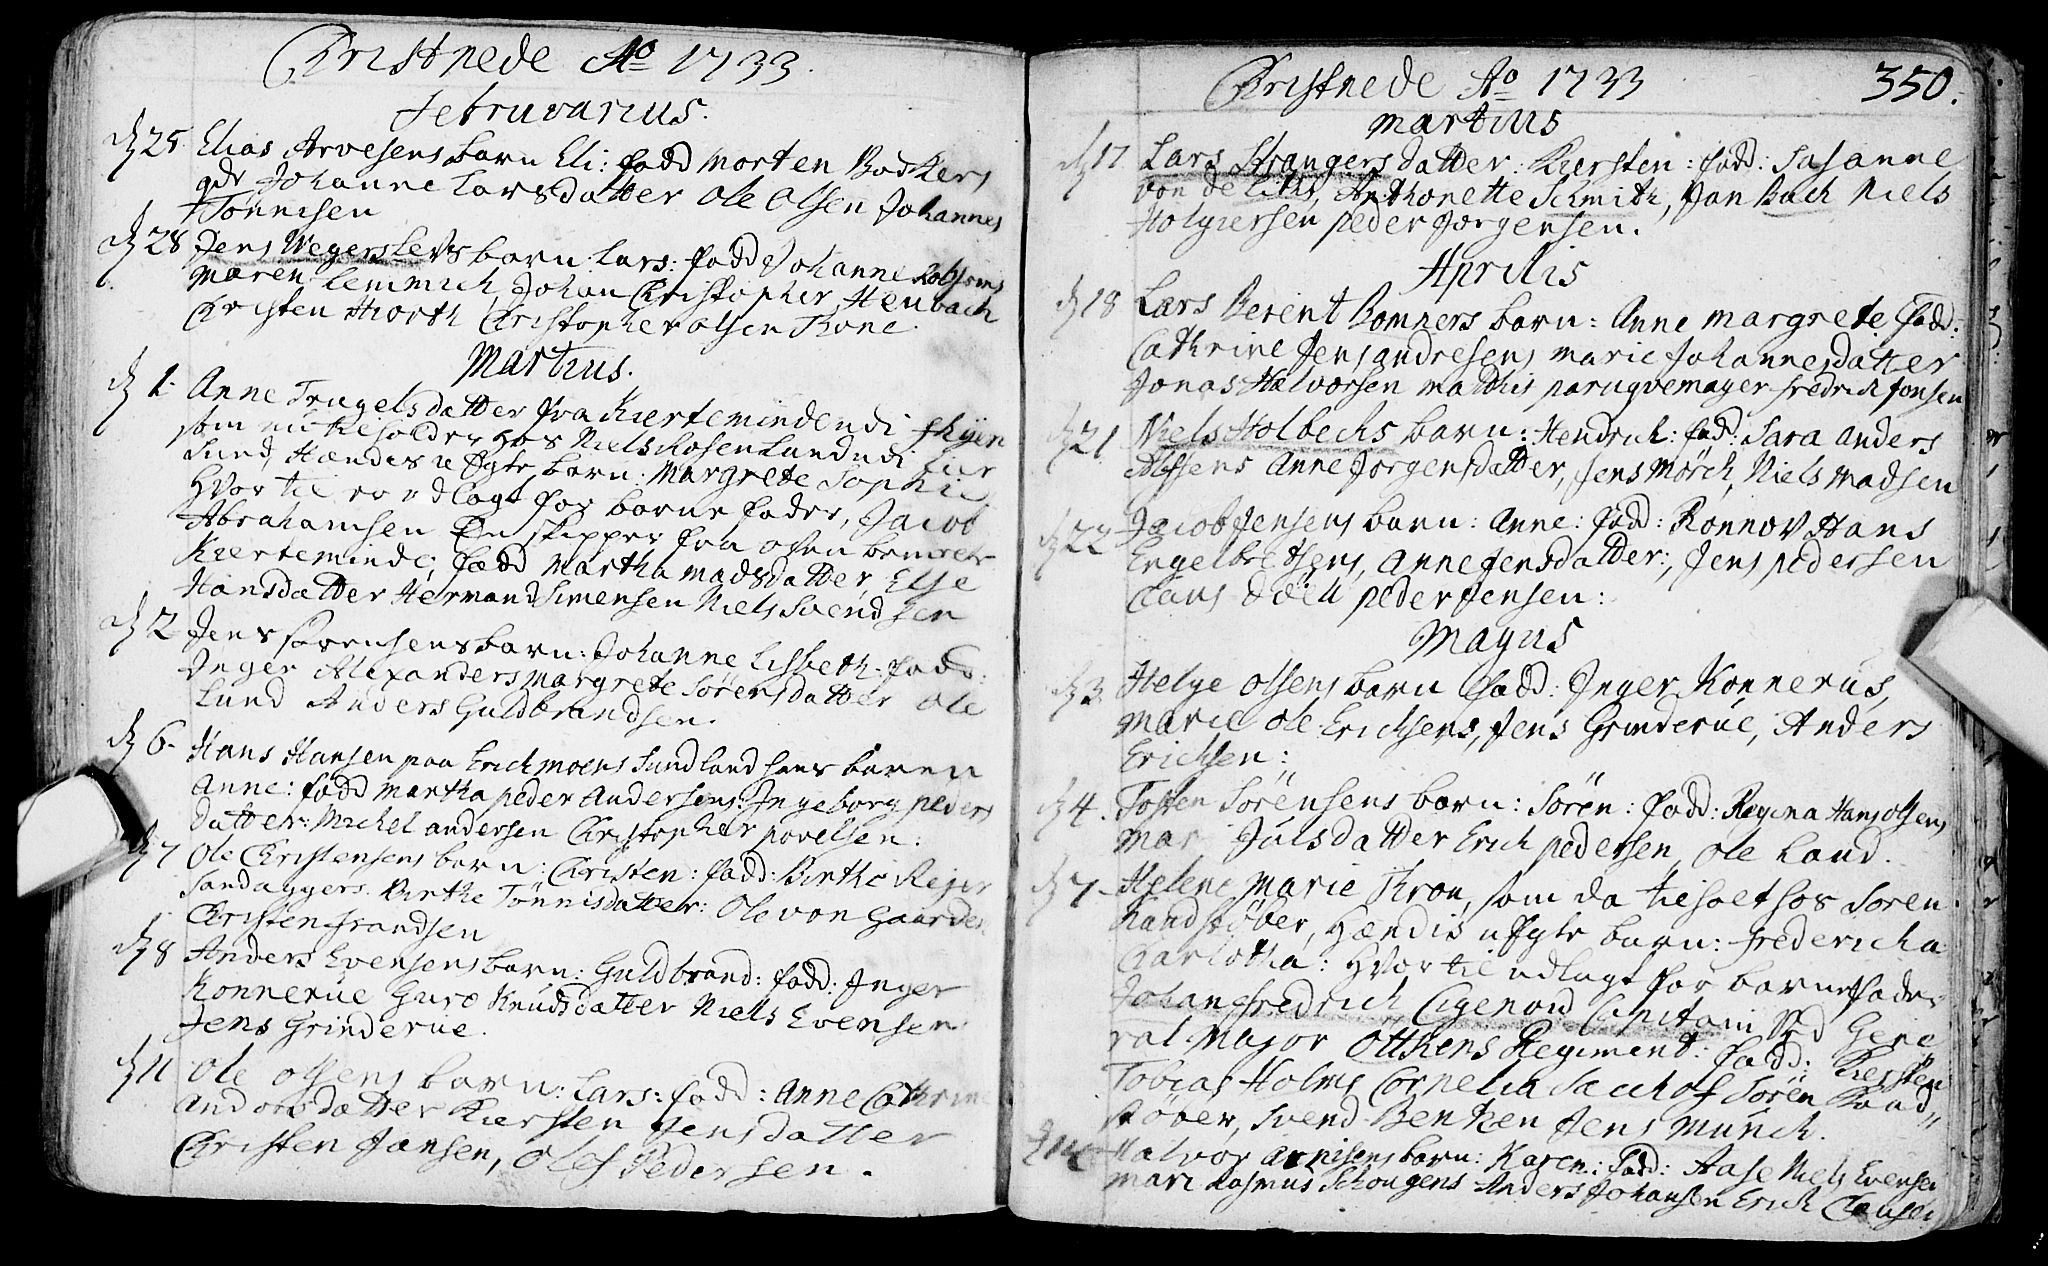 Christnede Ao 1733.
Februarius.
d 25 Elias Arvesens barn Eli: fadd Morten Bødkers
Johanne Larsdatter Ole Olsen Johannes
Tønnisen
d 28 Jens Wegerslevs barn: Lars: fadd Johanne
Maren Lemmich Johan Christopher Henbach
Christen Hiorth Christopher Olsen
Martius.
d 1. Anne Trugels datter fra Kierteminde udi fhyen
som hos Niels Rosenlund udi
Sund, Hændis uEgte barn: Margrete Sophie
Hvor til er udlagt for barne fader, Jacob
Abrahamsen En skipper fra
Kierteminde; fadd Martha Madsdatter, Else
Hansdatter Herman Simensen Niels Svendsen
d 2 Jens Sørensens barn: Johanne Lisbeth: fadd:
Inger Alexanders Margrete Sørensdatter Ole
Lund Anders Guldbrandsen.
d 6. Hans Hansen paa Erichmoens Sundland hans barn
Anne: fadd Martha Peder Andersens: Ingeborg peders
datter: Michel andersen Christopher povelsen:
d 7 Ole Christensens barn: Christen: fadd: Birthe Rejer
Sandaggers. Birthe Tønnisdatter: Ole von Gaarder
Christen frandsen
d 8 Anders Evensens barn: Guldbrand: fadd: Inger
Konnerue Guro Knudsdatter Niels Evensen
Jens Grinderue.
d 11 Ole Olsens barn: Lars: fadd: Anne Cathrine
Andersdatter Kiersten Jensdatter
Christen Jansen, Oles Pedersen.
Christnede Ao 1733 350.
Martius
d 17. Lars Strangers datter: Kiersten: fadd: Susanne
von de Anthonette Schmith, Jan Bach Niels
Holgiersen peder Jørgensen.
Aprilis
d 18 Lars Berent Bomners barn: Anne Margrete fadd:
Cathrine Jens andresens, marie Johannesdatter
Jonas Halvorsen Matthis parugvemager fredrich Jonsen
d 21. Niels Holbechs barn: Hendrich: fad: Sara anders
Anne Jørgensdatter, Jens Mørch, Niels Madsen
d 22 Jacob Jensens barn: Anne: fad: Rønnov Hans
Engelbretsens, Anne Jensdatter:, Jens pedersen
Claus Døll peder Jensen:
Mayus
d 3 Helge olsens barn fadd: Inger Konnerus,
Marie Ole Erichsens, Jens Grinderue, Anders
Erichsen:
d 4. Tosten Sørensens barn: Søren: fadd: Regina Hans olsens
Mar Julsdatter Erich pedersen Ole Land.
d 7. Helene Marie Kron, som da tieneste hos Søren
Hændis uEgte barn: frederich a
Charlotha: Hvor til udlagt for barne fader
Johan fredrich Capitain Ved Gene
ral-Major Otthens Regiment: fadd: Kiersten
Tobias Holms Cornelia Søren Kand„
støber, Svend Benken Jens Munch.
d 14 Halvor Arnisens barn: Karen: fad: Aase Niels Evensen
Mari Rasmus Schougens Anders Johansen Erich Clausen